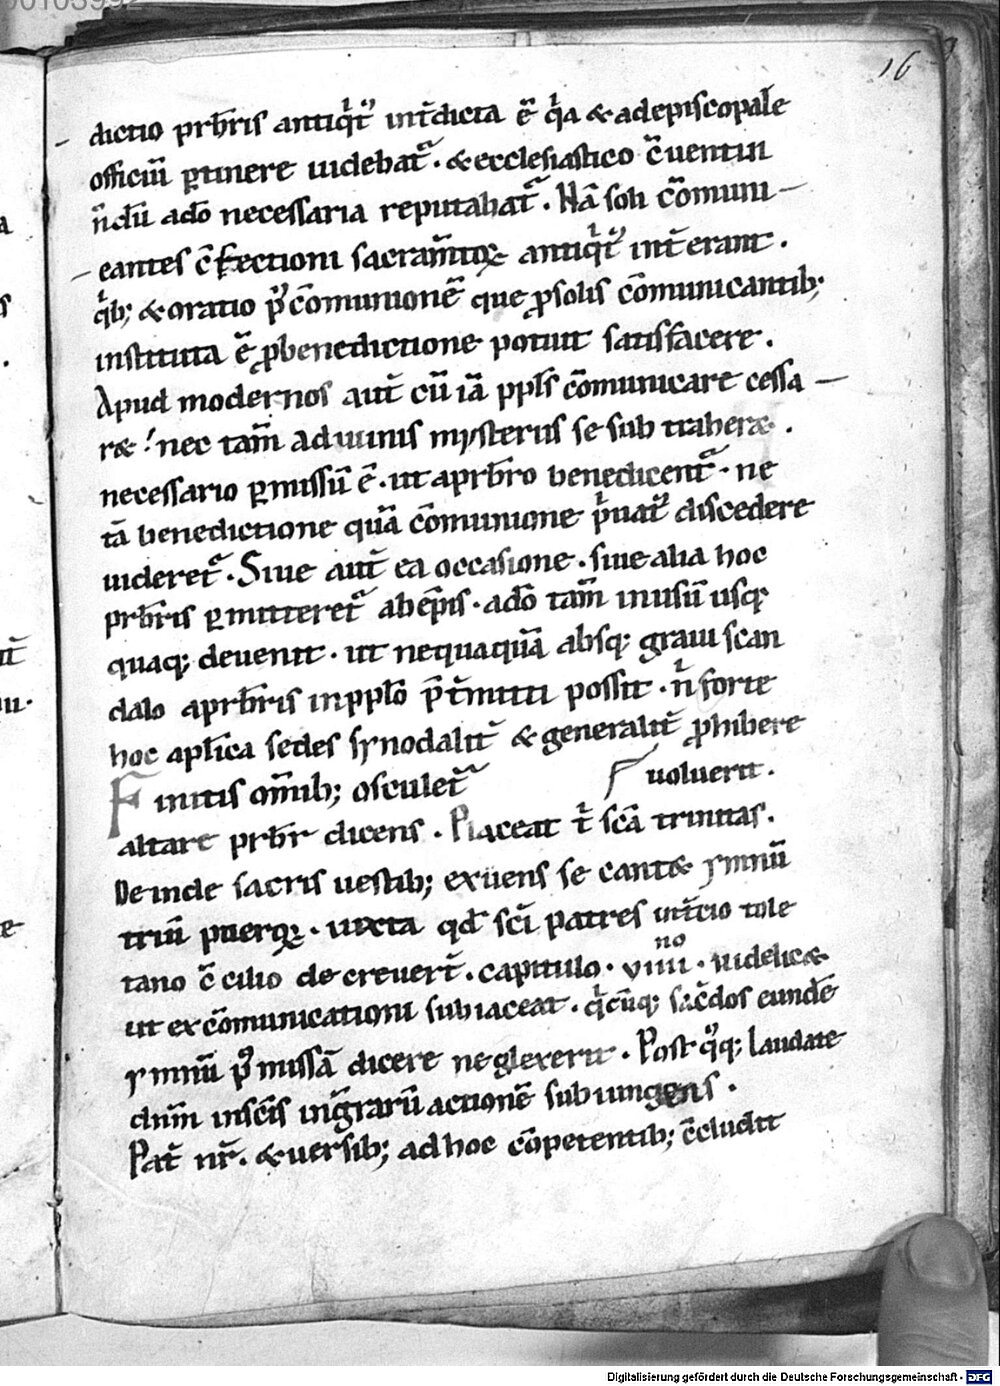 00103992
16
dictio prb̄ris antiqͥtꝰ int̄dicta ē qͥa & ad episcopale
officiū ꝑtinere uidebat᷑. & ecclesiastico c̄uentui
n̄dū adō necessaria reputabat᷑. Nā soli cōmuni-
cantes c̄fectioni sacram̄toꝝ antiqͥtꝰ int̄erant.
qͥb; & oratio pꝰ cōmunionē que ꝓ solis cōmunicantib;
instituta ē ꝓ benedictione potuit satisfacere.
Apud modernos aut̄ cū iā ppl̄s cōmunicare cessa-
r&! nec tam̄ a diuinis mysteriis se subtraher&.
necessario ꝑmissū ē. ut a prb̄ro benedicent᷑. ne
tā benedictione quā cōmunione pͥuatꝰ discedere
uideret᷑. Siue aut̄ ea occasione. siue alia hoc
prb̄ris ꝑmitteret᷑ ab ep̄is. adō tam̄ in usū usq;
quaq; deuenit. ut nequaquā absq; graui scan
dalo a prb̄ris in pplō p̄t̄mitti possit. nͥ forte
hoc apl̄ica sedes synodalit̄ & generalit̄ ꝓhibere
Finitis om̄ib; osculet᷑ uoluerit.
altare prb̄r dicens. Placeat tͥ scā trinitas.
Deinde sacris uestib; exuens se cant& ymnū
triū pueroꝝ. iuxta qd̄ sc̄i patres in t̄cio tole
tano c̄cilio decreuer̄t. capitulo. viiii no. uidelic&
ut excōmunicationi subiaceat. qͥcūq; sac̄dos eundē
ymnū pꝰ missā dicere neglexerit. Post qꝰq; Laudate
dn̄m in sc̄is in gr̄arū actionē subiungens.
Pat̄ nr̄. & uersib; ad hoc cōpetentib; c̄cludit
Digitalisierung gefördert durch die Deutsche Forschungsgemeinschaft - DFG